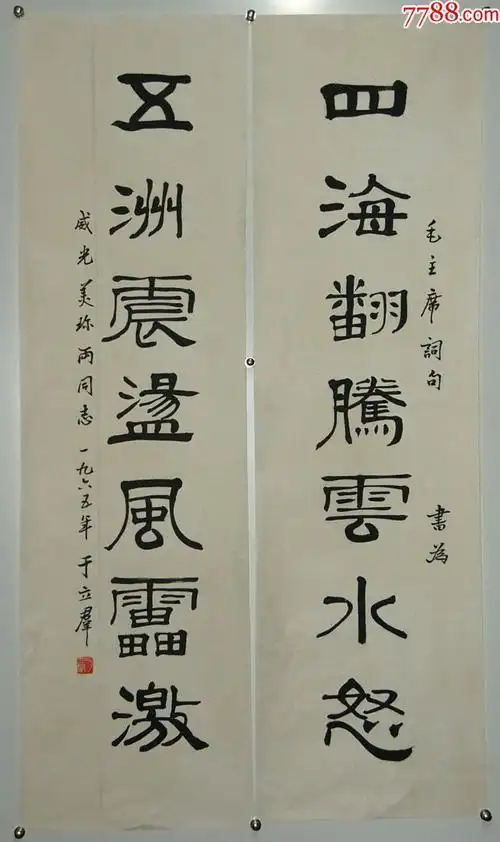 7788.com
毛主席詞句 書為
四海翻騰雲水怒
五洲震盪風靁激
威光美珎两同志 一九六五年 于立羣